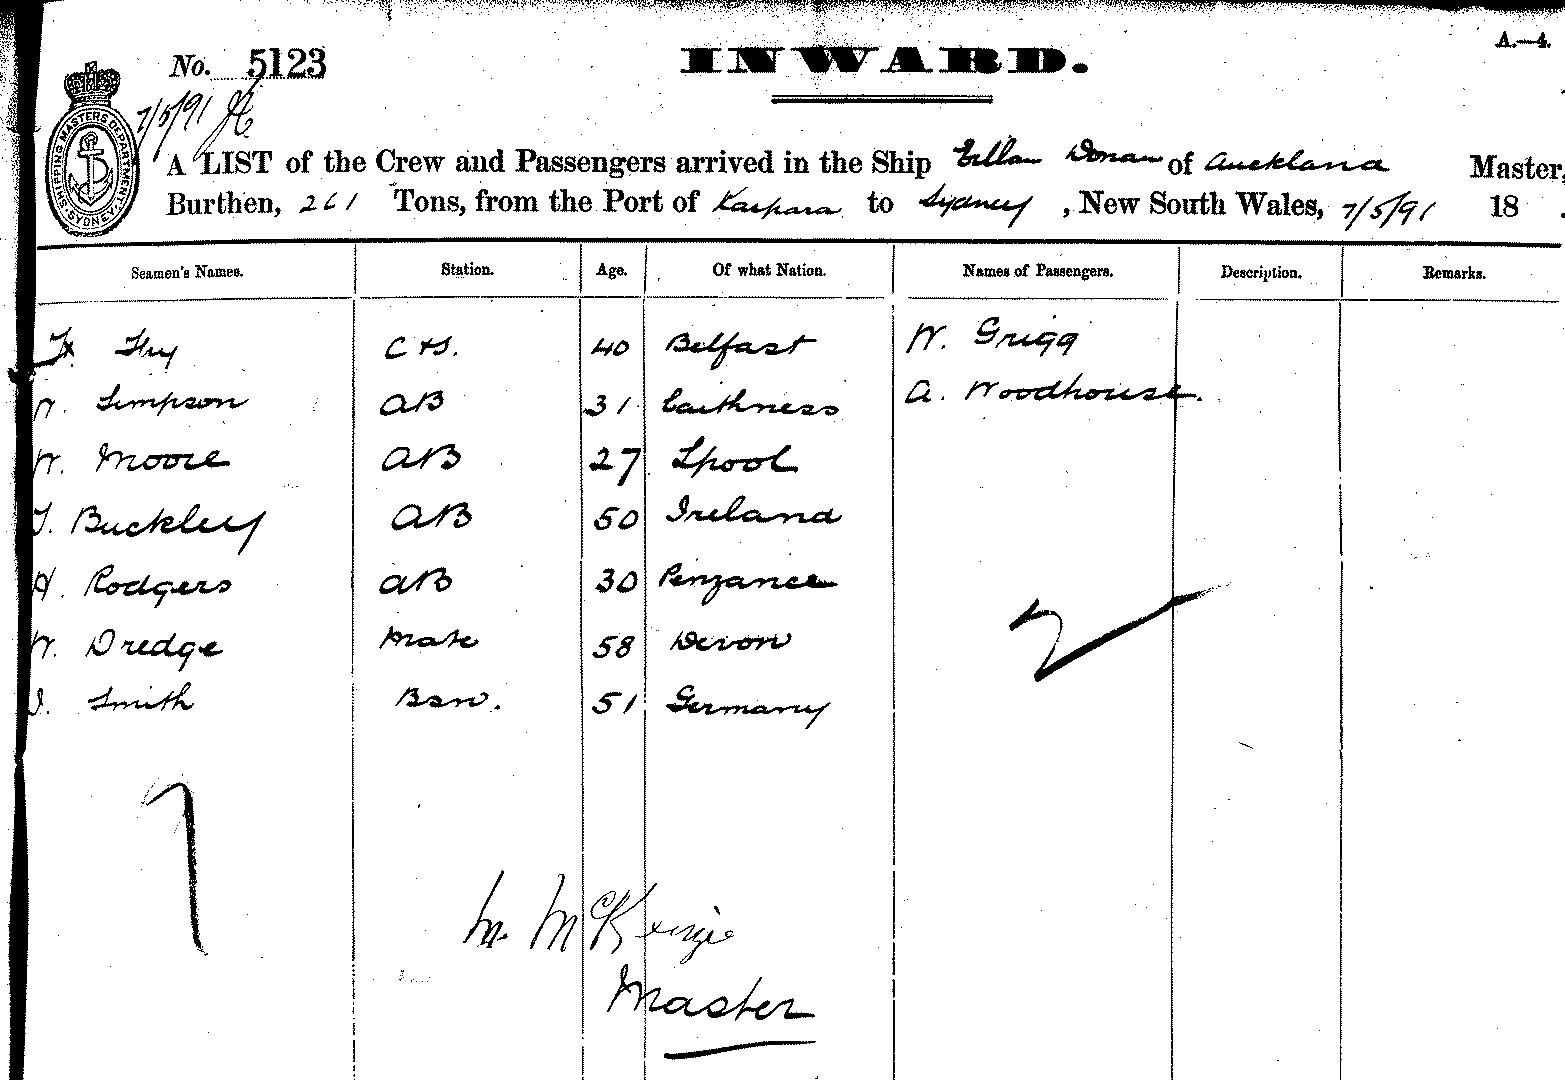 A.—4.
No. 5123
INWARD.
7/5/91
SHIPPING MASTERS DEPARTMENT SYDNEY
A LIST of the Crew and Passengers arrived in the Ship Eillan Donan of Auckland Master,
Burthen, 261 Tons, from the Port of Kaipara to Sydney, New South Wales, 7/5/91 18 .
Seamen's Names. Station. Age. Of what Nation. Names of Passengers. Description. Remarks.
C & S. 40 Belfast W. Grigg
W. Simpson AB 31 Caithness A. Woodhouse.
W. Moore AB 27 Lpool
T. Buckley AB 50 Ireland
H. Rodgers AB 30 Penzance
W. Dredge Mate 58 Devon
J. Smith Bsn. 51 Germany
2
7
M. McKenzie
Master